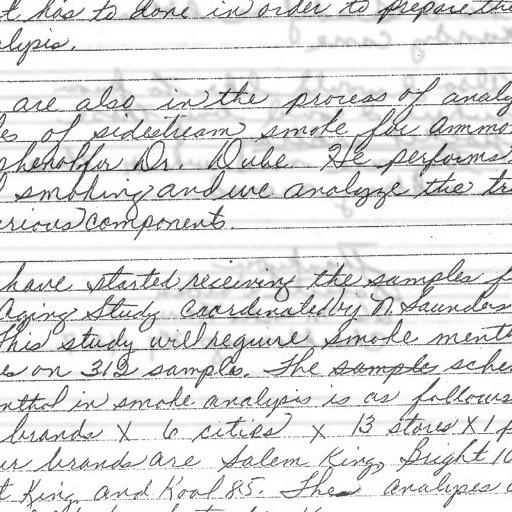 t has to done in order to prepare the
alysis.
are also in the process of analy
les of sidestream smoke for ammo
phenol for Dr. Dube. He performs
l smoking and we analyze the tr
arious components.
have started receiving the samples f
Aging Study coordinated by N. Saunders
This study will require smoke menth
es on 312 samples. The sample sche
nthol in smoke analysis is as follows
brands X 6 cities X 13 stores X 1 p
ur brands are Salem King, Bright 10
t King and Kool 85. The analyses